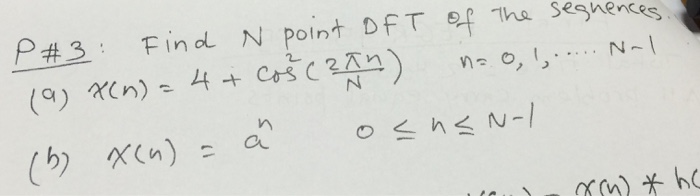 P#3: Find N point DFT of The seqnences.
(a) x(n) = 4 + cos²(2πn/N) n= 0, 1, ..... N-1
(b) x(n) = aⁿ 0 ≤ n ≤ N-1
x(n) * h(